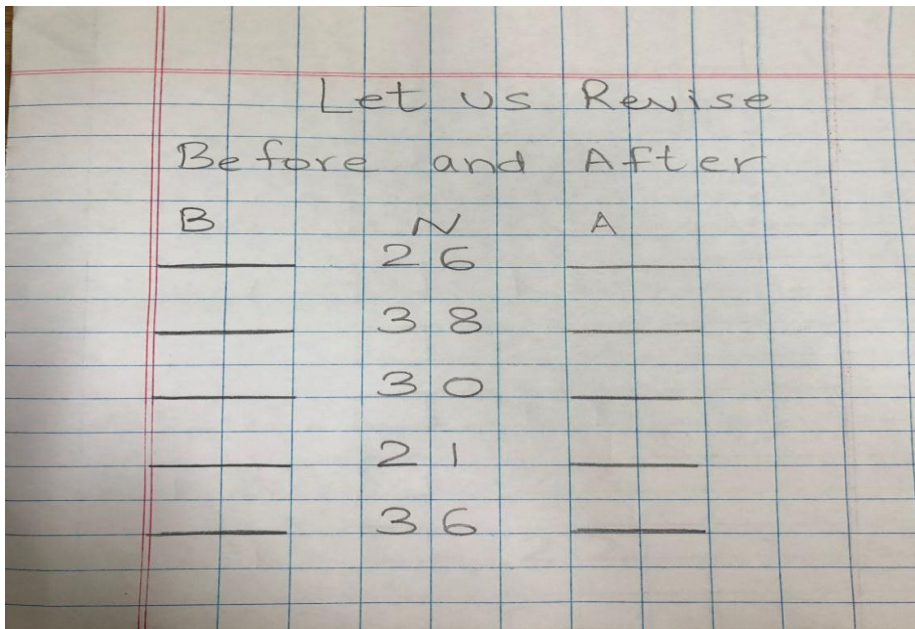 Let us Revise
Before and After
B N A
26
38
30
21
36